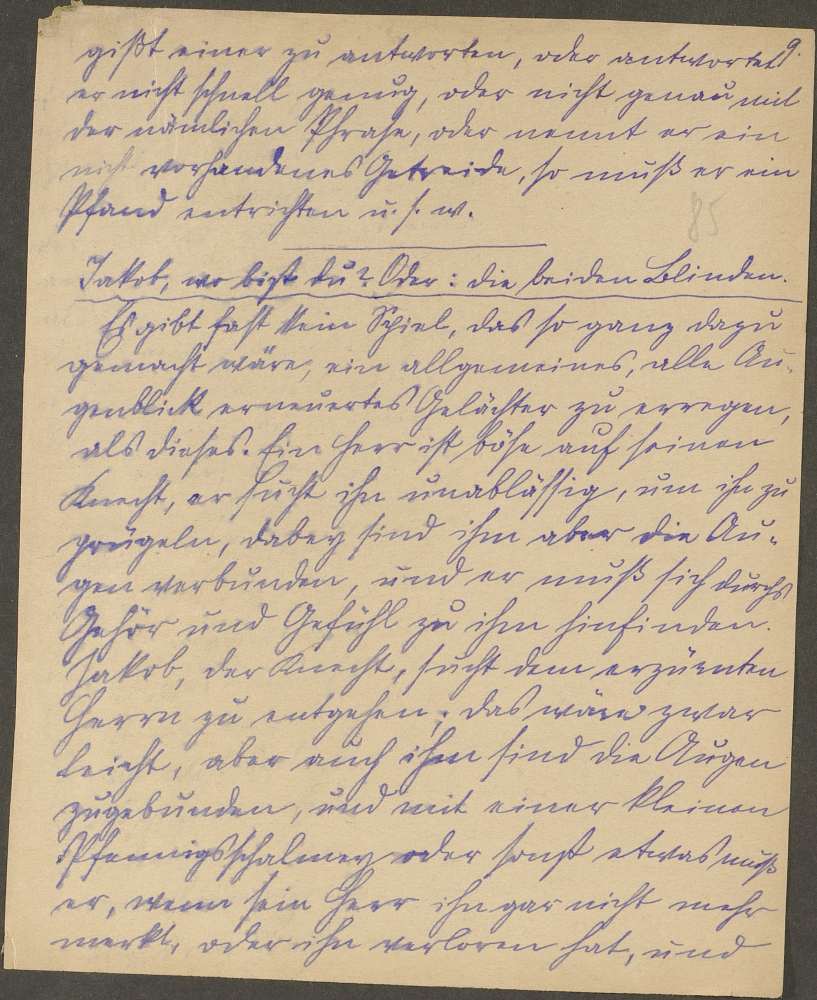 9.
gißt einer zu antworten, oder antwortet
er nicht schnell genug, oder nicht genau mit
der nämlichen Phrase, oder nennt er ein
nicht vorhandenes Getreide, so muß er ein
Pfand entrichten u. s. w.
85
Jakob, wo bist du? Oder: die beiden Blinden.
Es gibt fast kein Spiel, das so ganz dazu
gemacht wäre, ein allgemeines, alle Au-
genblick erneuertes Gelächter zu erregen,
als dieses. Ein Herr ist böse auf seinen
Knecht, er sucht ihn unablässig, um ihn zu
prügeln, dabey sind ihm aber die Au-
gen verbunden, und er muß sich durchs
Gehör und Gefühl zu ihm hinfinden.
Jakob, der Knecht, sucht dem erzürnten
Herrn zu entgehen; das wäre zwar
leicht, aber auch ihm sind die Augen
zugebunden, und mit einer kleinen
Pfennigsschalmey oder sonst etwas muß
er, wenn sein Herr ihn gar nicht mehr
merkt, oder ihn verloren hat, und